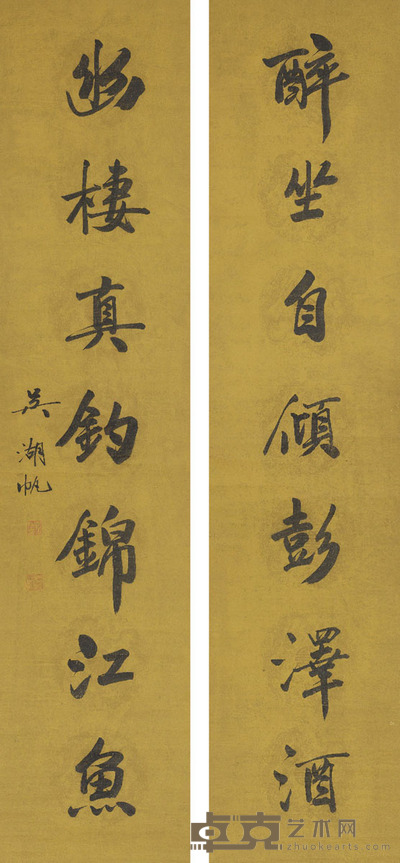 醉坐自傾彭澤酒
幽棲真釣錦江魚
吳湖帆
卓克艺术网
zhuokearts.com